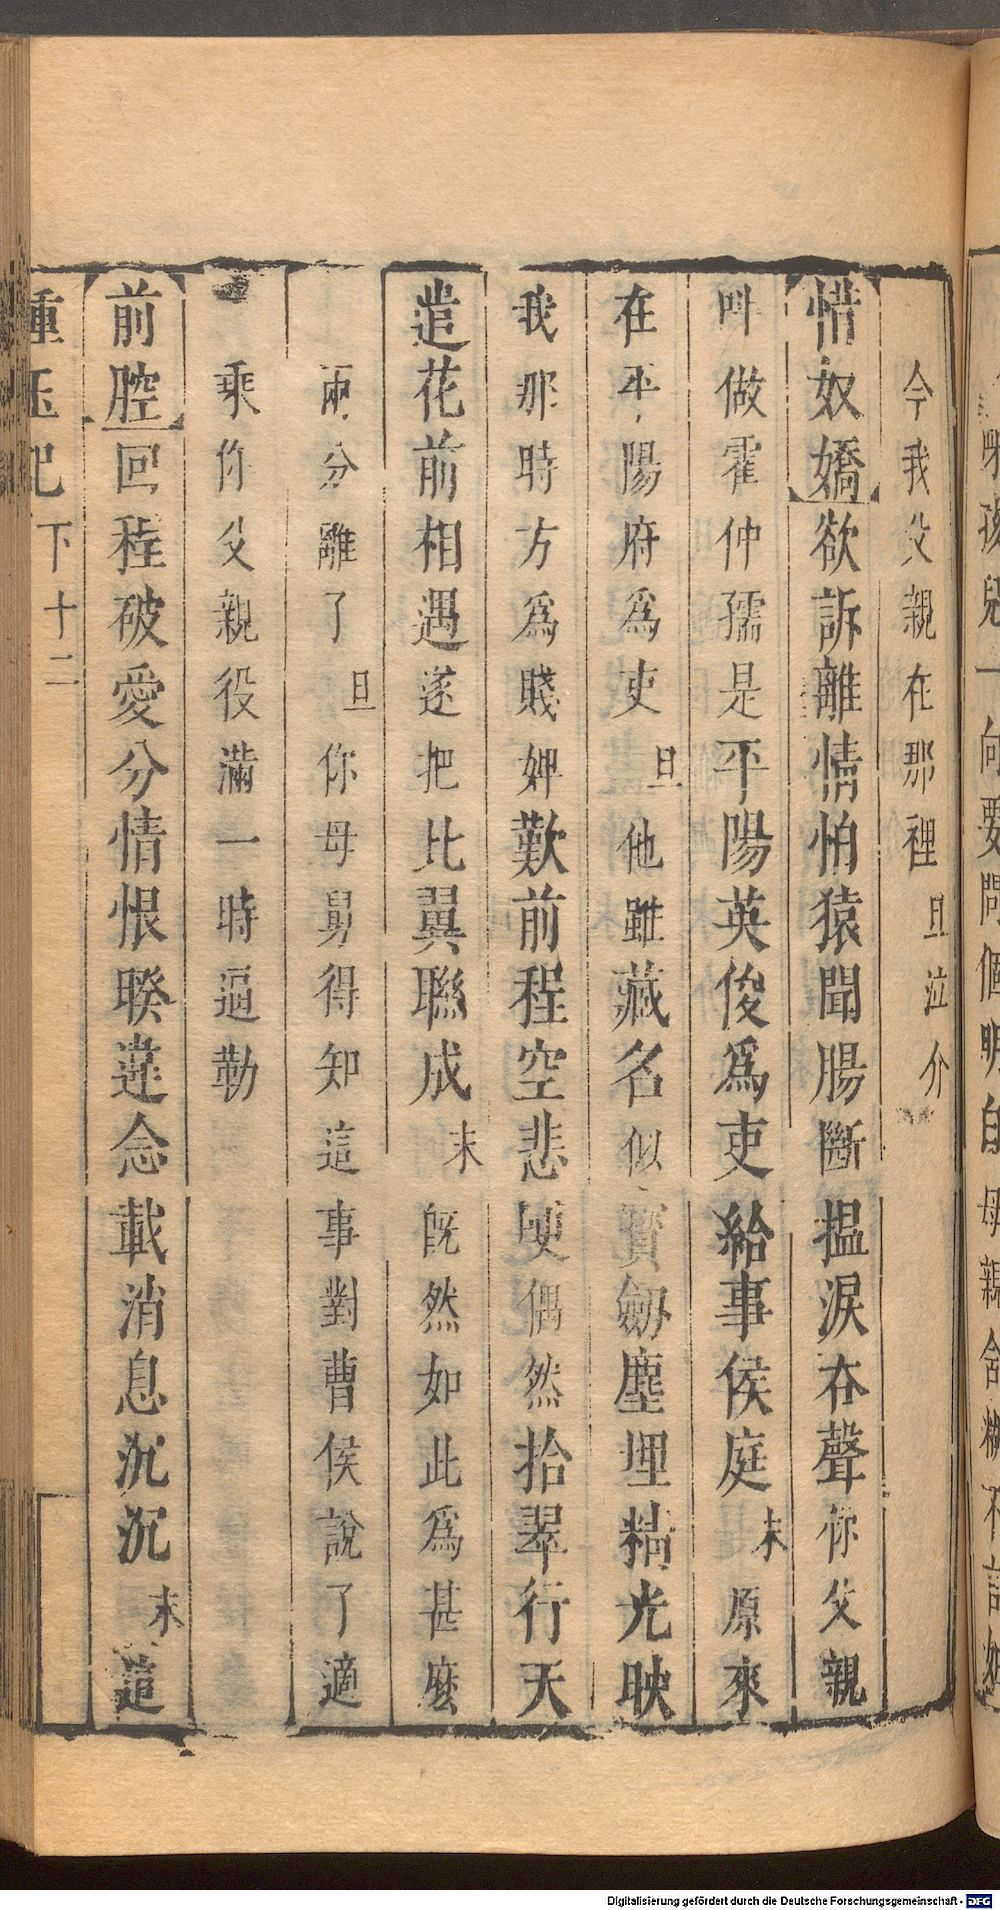 今我父親在那裡旦泣介
惜奴嬌欲訴離情怕猿聞腸斷揾淚吞聲你父親
叫做霍仲孺是平陽英俊爲吏給事侯庭末原來
在平陽府爲吏旦他雖藏名似寶劒塵埋精光映
我那時方爲賤婢歎前程空悲哽偶然拾翠行天
遣花前相遇遂把比翼聯成末既然如此爲甚麽
兩分離了旦你母舅得知這事對曹侯說了適
乘你父親役滿一時逼勒
前腔回程破愛分情恨暌違念載消息沉沉末這
下十二
Digitalisierung gefördert durch die Deutsche Forschungsgemeinschaft - DFG